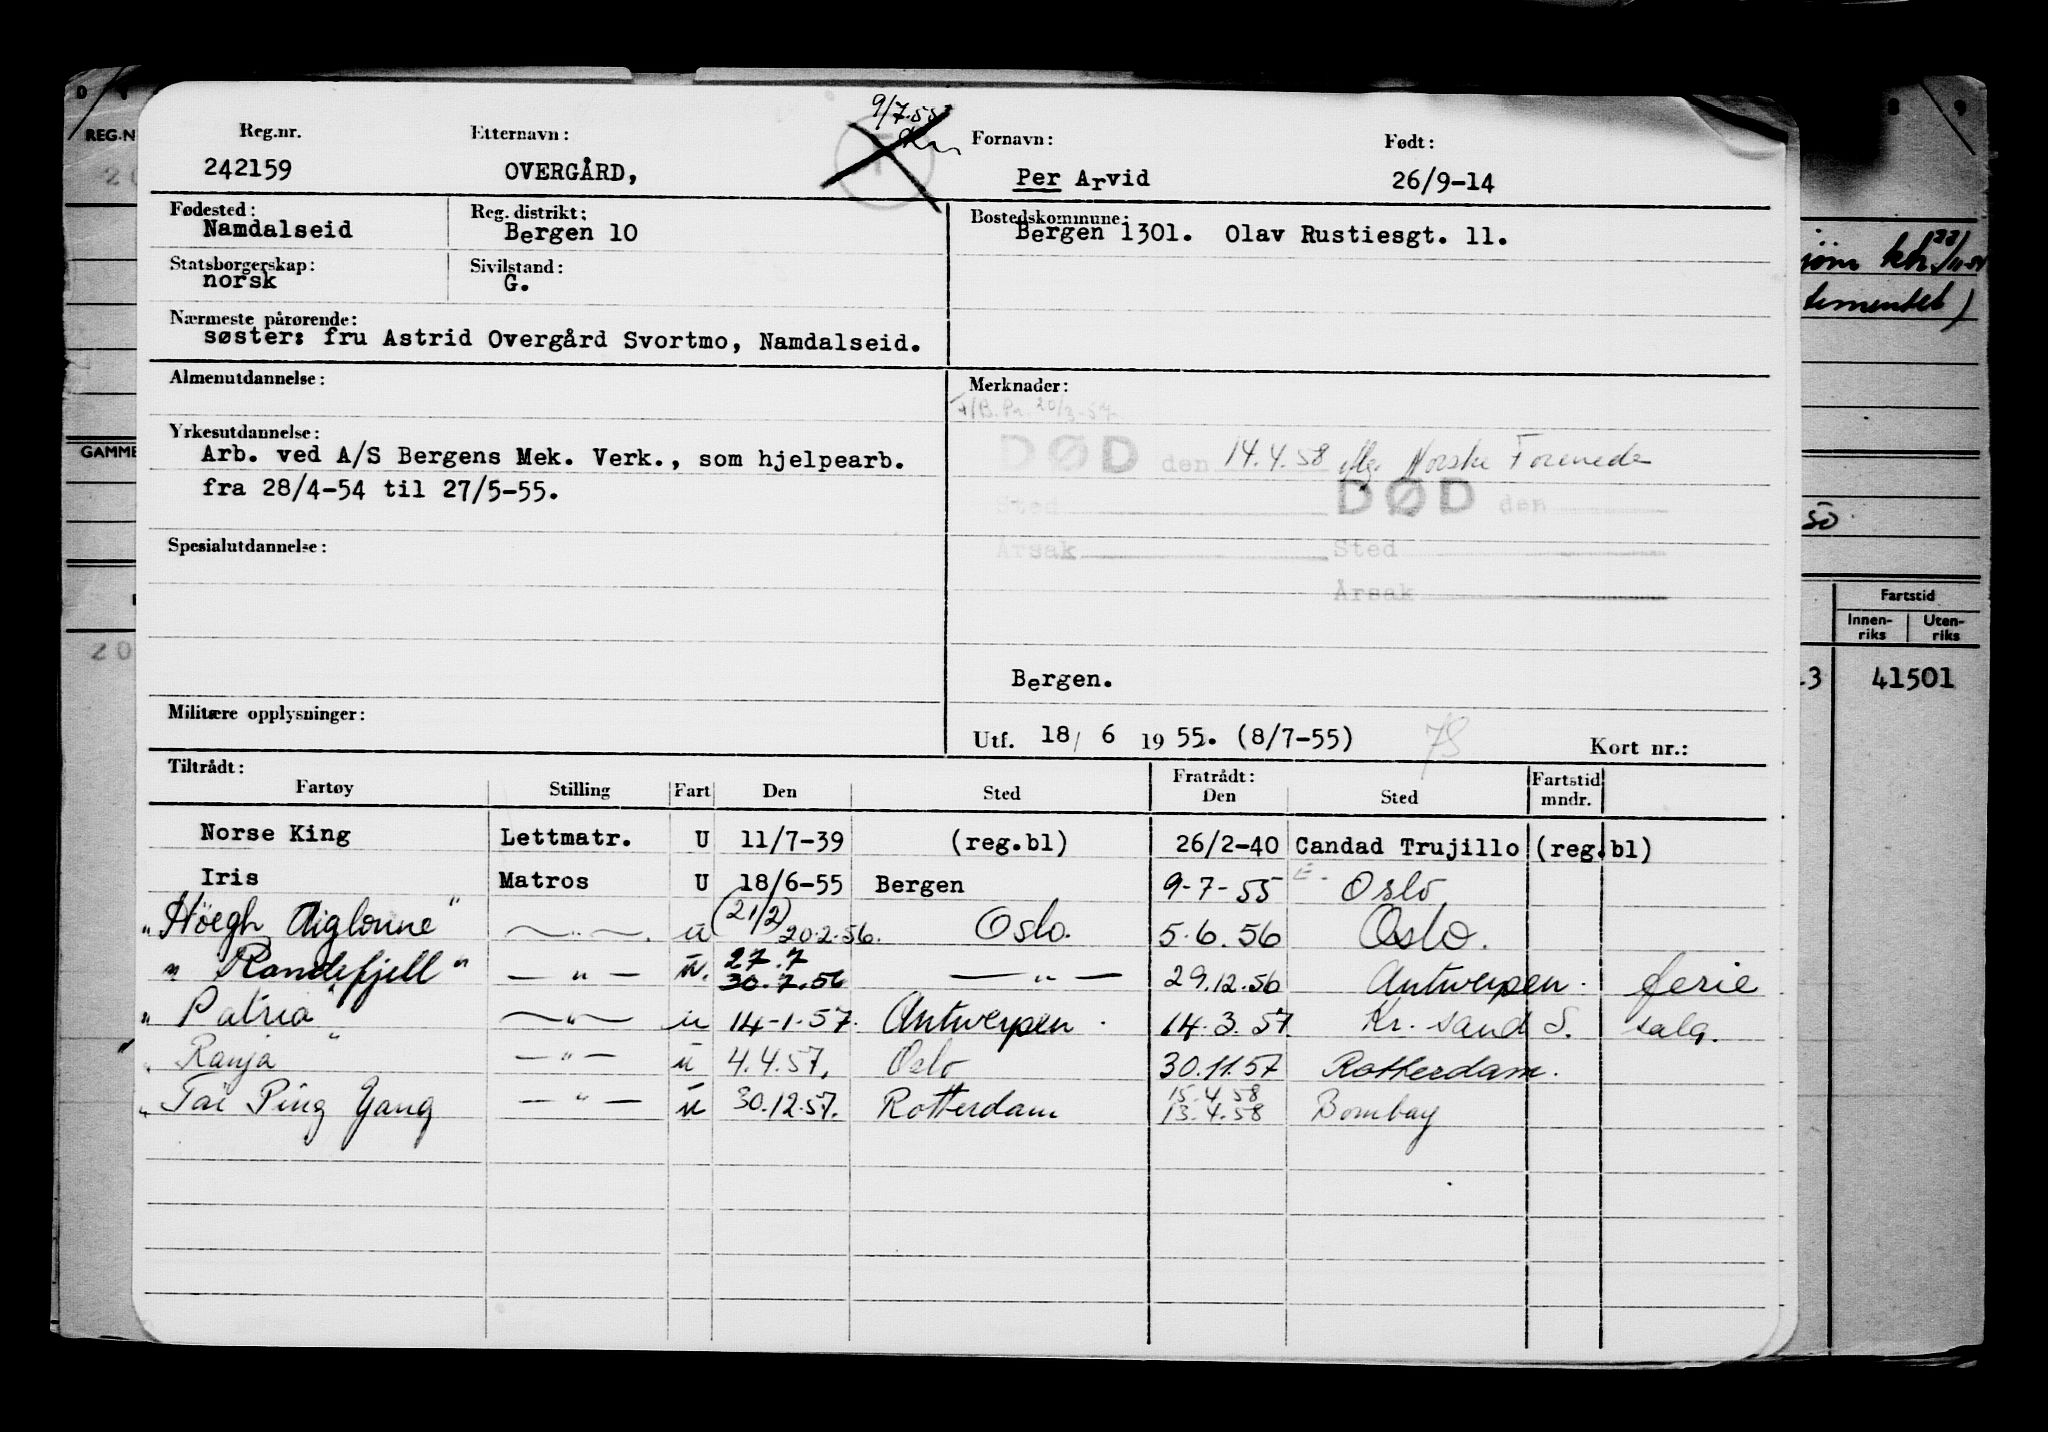 9/7-55
Reg.nr. Etternavn: Fornavn: Født:
242159 OVERGÅRD, Per Arvid 26/9-14
Fødested: Reg. distrikt: Bostedskommune:
Namdalseid Bergen 10 Bergen 1301. Olav Rustiesgt. 11.
Statsborgerskap: Sivilstand:
norsk G.
Nærmeste pårørende:
søster: fru Astrid Overgård Svortmo, Namdalseid.
Almenutdannelse: Merknader:
20/3-57
Yrkesutdannelse:
Arb. ved A/S Bergens Mek. Verk., som hjelpearb.
fra 28/4-54 til 27/5-55.
DØD den 14.4.58 iflg. Norske Forenede
Sted DØD den
Årsak Sted
Årsak
Spesialutdannelse:
Bergen.
Militære opplysninger:
Utf. 18/ 6 1955. (8/7-55) 78 Kort nr.:
Tiltrådt: Fratrådt:
Fartøy Stilling Fart Den Sted Den Sted Fartstid mndr.
Norse King Lettmatr. U 11/7-39 (reg.bl) 26/2-40 Candad Trujillo (reg.bl)
Iris Matros U 18/6-55 Bergen 9-7-55 Oslo
"Höegh Aiglonne" — " — u (21/2) 20.2.56. Oslo. 5.6.56 Oslo.
" Randsfjell " — " — u. 27.7 30.7.56 — " — 29.12.56 Antwerpen. ferie
" Patria " — " — u 14-1-57. Antwerpen. 14.3.57. Kr. sand S. salg.
" Ranja — " — u 4.4.57. Oslo 30.11.57 Rotterdam.
" Tai Ping Yang — " — u 30.12.57. Rotterdam 15.4.58 13.4.58 Bombay
REG.N
GAMME
20
8 9
tementet)
50
Fartstid
Innen-riks Uten-riks
3 41501